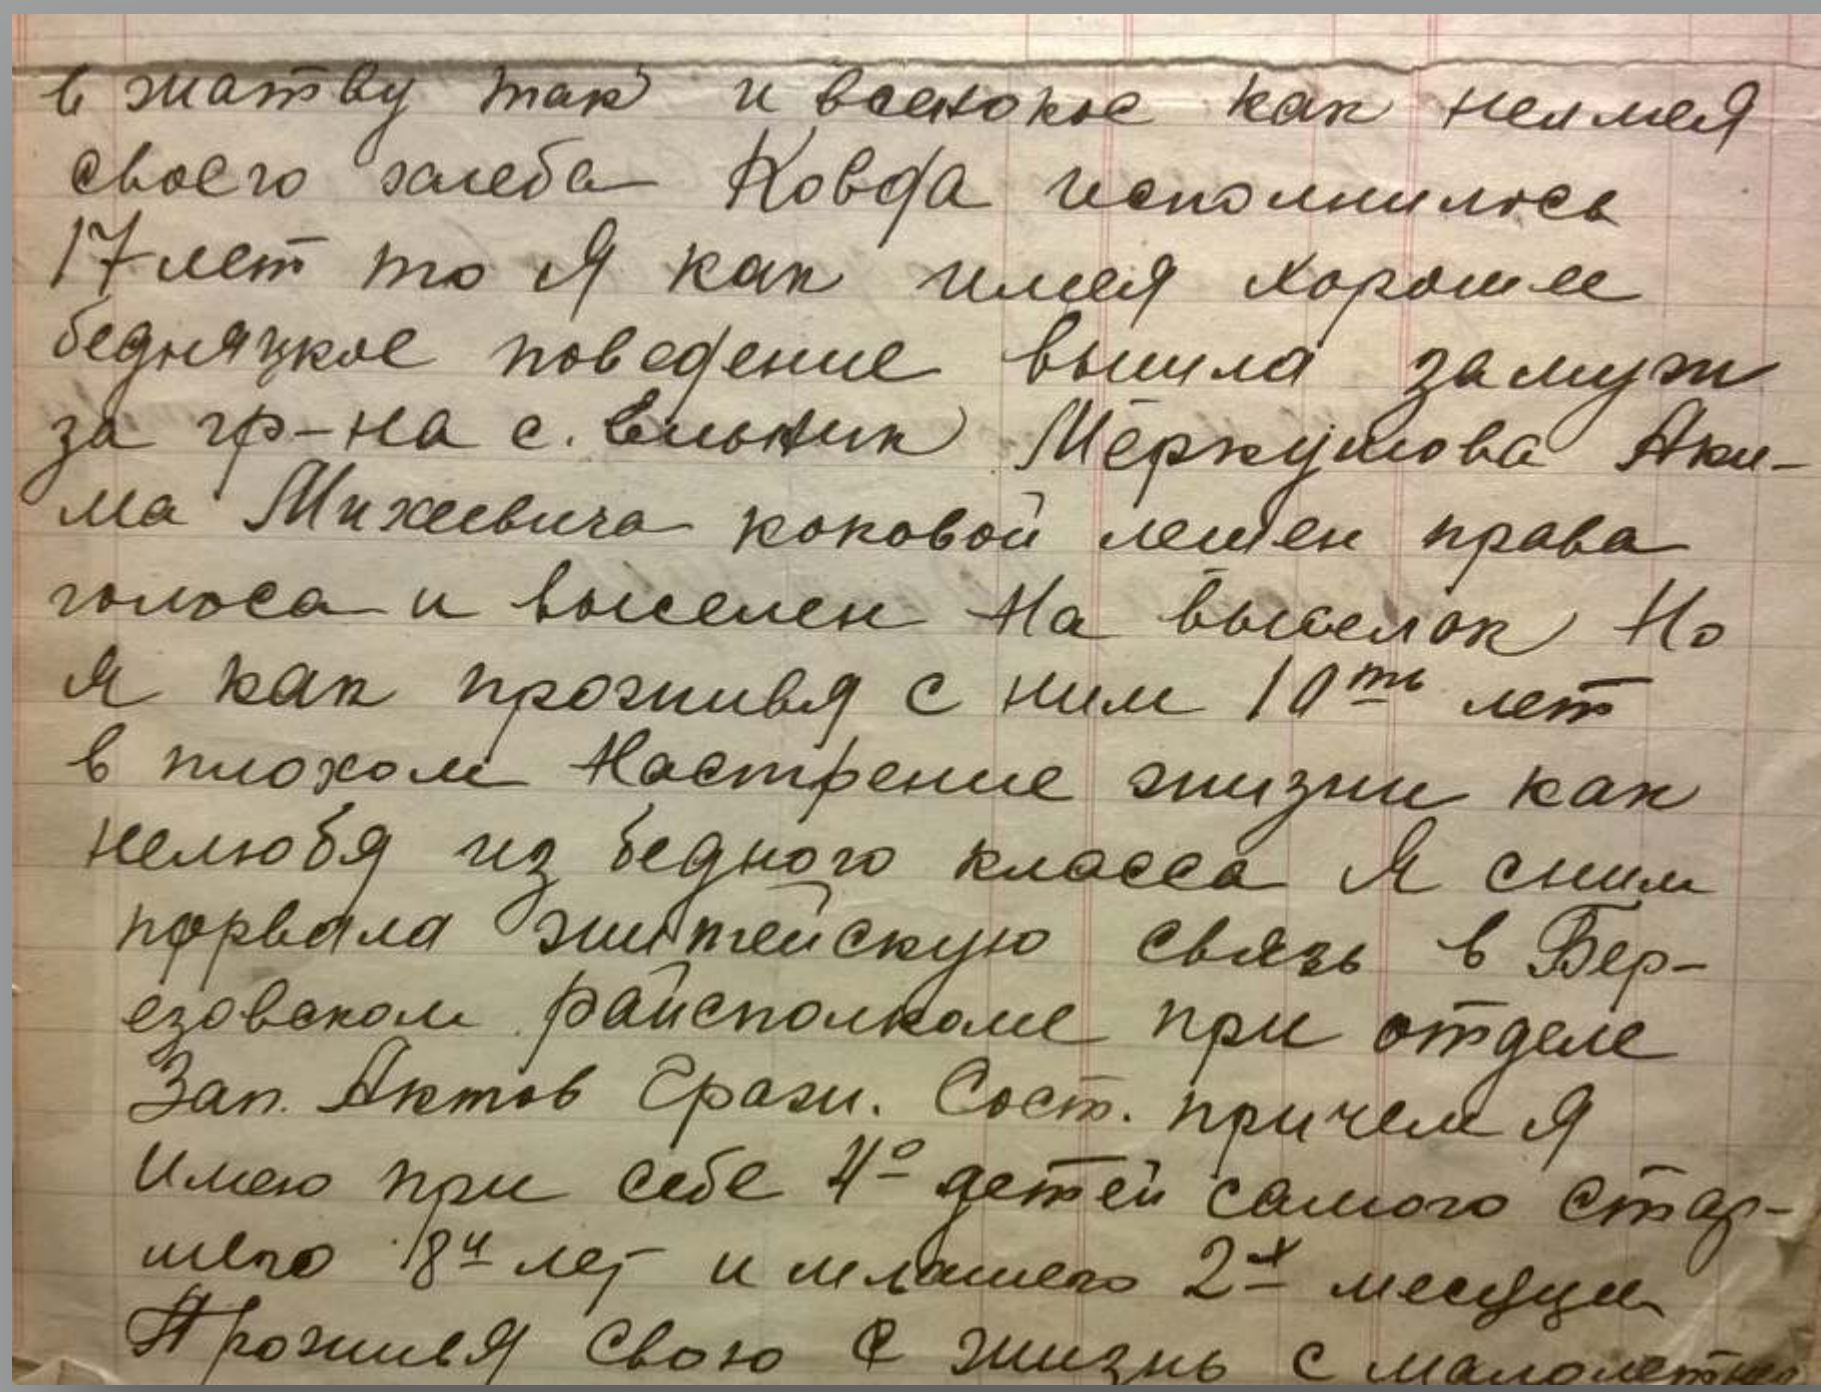 в жатву так и всенокос как неимея
своего хлеба Ковда исполнилось
17 лет то Я как имея хорошее
бедняцкое поведение вышла замуж
за гр-на с. Меркулова Аки-
ма Михеевича коковой лешен права
голоса и выселен На выселок Но
я как проживя с ним 10ть лет
в плохом Настрение жизни как
нелюбя из бедного класса Я сним
порвала житейскую связь в Бер-
езовском райсполкоме при отделе
Зап. Актов Гражи. Сост. причем Я
Имею при себе 4о детей самого стар-
шего 8и лет и млашего 2х месяцы
Проживя свою жизнь с малолетн